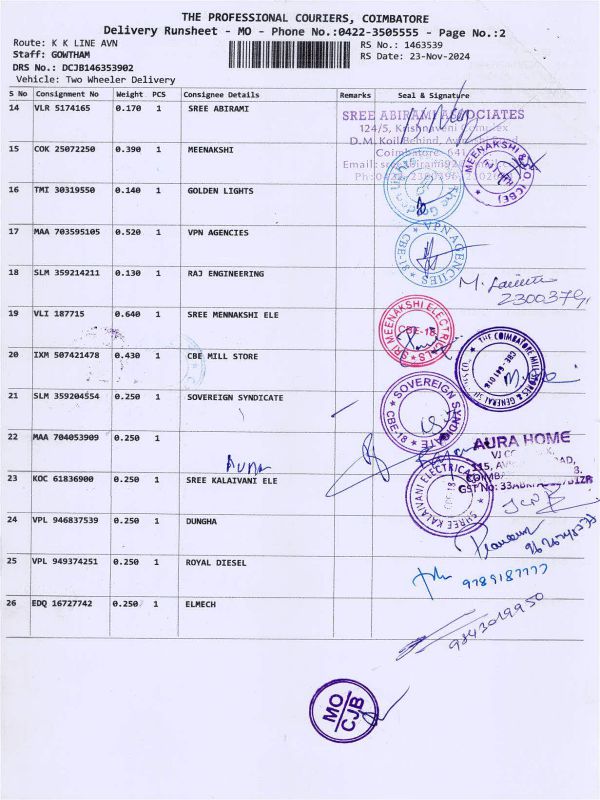 THE PROFESSIONAL COURIERS, COIMBATORE
Delivery Runsheet - MO - Phone No.:0422-3505555 - Page No.:2
Route: K K LINE AVN
RS No.: 1463539
Staff: GOWTHAM
RS Date: 23-Nov-2024
DRS No.: DCJB146353902
Vehicle: Two Wheeler Delivery
S No Consignment No Weight PCS Consignee Details Remarks Seal & Signature
14 VLR 5174165 0.170 1 SREE ABIRAMI
SREE ABIRAMI ASSOCIATES
124/5, Krishnaveni Complex
D.M. Koil Behind,
Coimbatore
15 COK 25072250 0.390 1 MEENAKSHI
MEENAKSHI & CO (CBE)
16 TMI 30319550 0.140 1 GOLDEN LIGHTS
17 MAA 703595105 0.520 1 VPN AGENCIES
VPN AGENCIES
CBE-18
18 SLM 359214211 0.130 1 RAJ ENGINEERING
2300379
19 VLI 187715 0.640 1 SREE MENNAKSHI ELE
SRI MEENAKSHI ELECTRICALS
CBE-18
20 IXM 507421478 0.430 1 CBE MILL STORE
THE COIMBATORE MILL STORES & GENERAL
CBE 641 018
21 SLM 359204554 0.250 1 SOVEREIGN SYNDICATE
SOVEREIGN SYNDICATE
CBE-18
22 MAA 704053909 0.250 1
AURA
AURA HOME
23 KOC 61836900 0.250 1 SREE KALAIVANI ELE
SHREE KALAIVANI ELECTRICAL
CBE-18
24 VPL 946837539 0.250 1 DUNGHA
25 VPL 949374251 0.250 1 ROYAL DIESEL
9789187777
26 EDQ 16727742 0.250 1 ELMECH
9843019950
MO
CJB